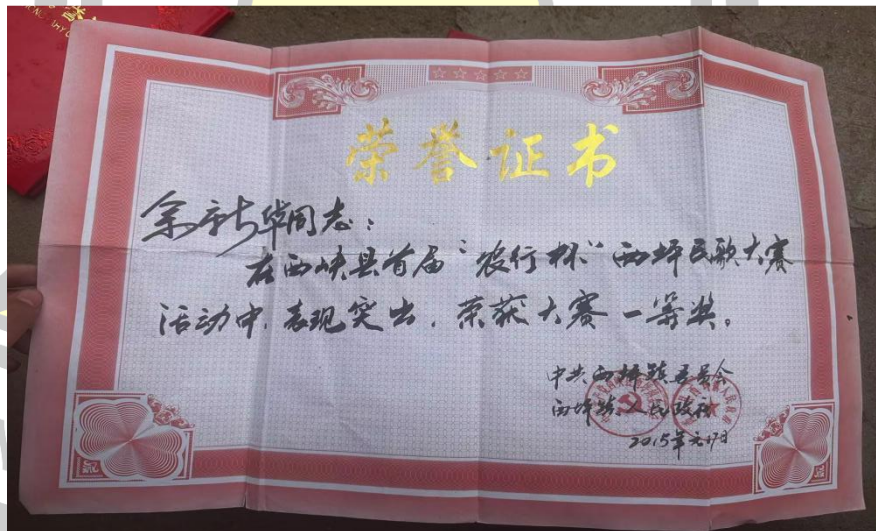 荣誉证书
余新华同志：
在西峡县首届“农行杯”西坪民歌大赛
活动中，表现突出，荣获大赛一等奖。
中共西坪镇委员会
西坪镇人民政府
2015年元月